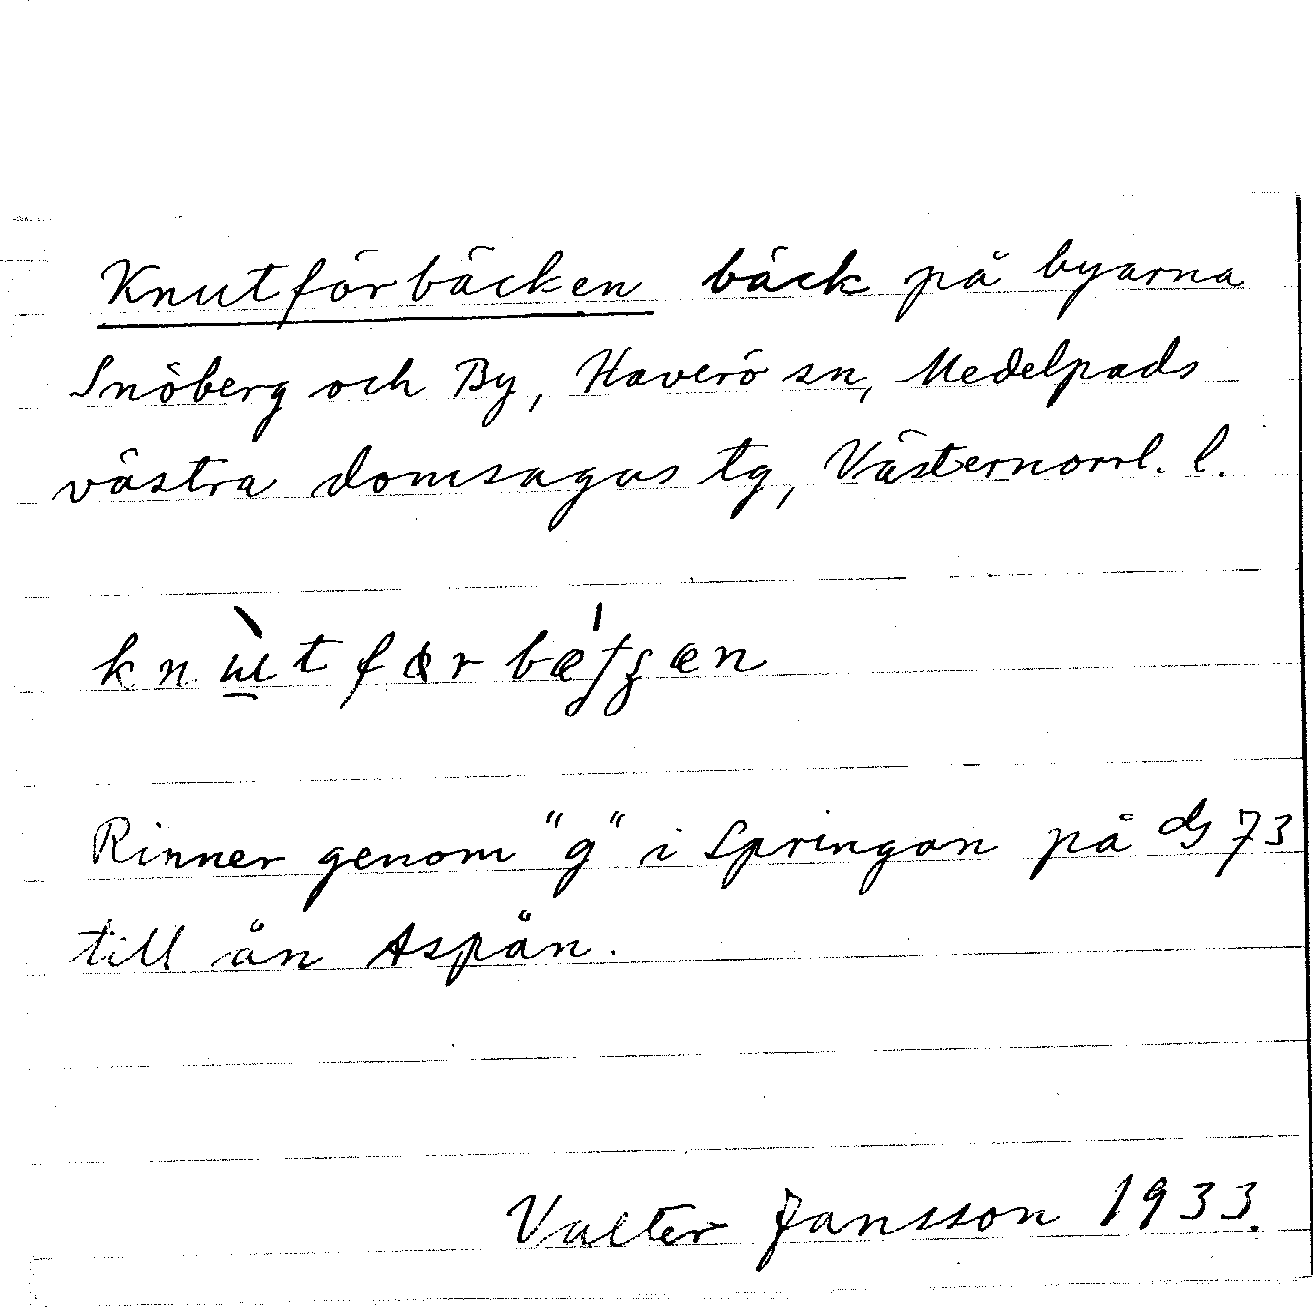 Knutförbäcken bäck på byarna
Snöberg och By, Haverö sn, Medelpads
västra domsagas tg, Västernorrl. l.
Rinner genom "g" i Springan på dG 73
till ån Aspån.
Valter Jansson 1933.